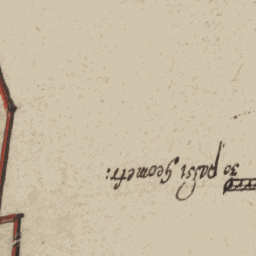 30 passi Geometr: